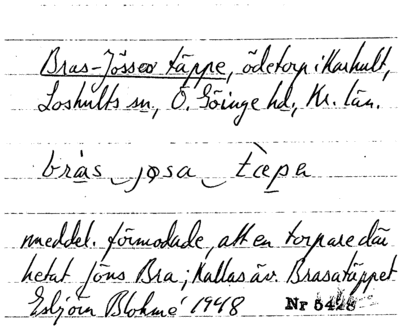 Bras-Jössos täppe, ödetorp i Karhult,
Loshults sn, Ö. Göinge hd, Kr. län.
bràs‿jøsa‿tὲpa
meddel. förmodade, att en torpare där
hetat Jöns Bra; kallas äv. Brasatäppet
Esbjörn Blohmé 1948 Nr 5428